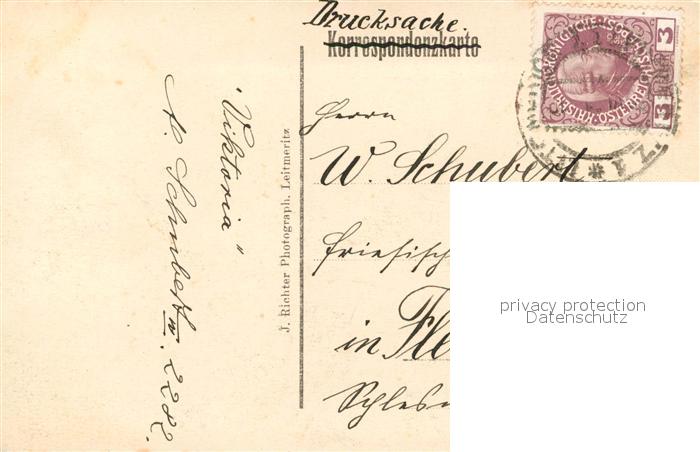 Drucksache.
Korrespondenzkarte
KAISERLICHE KÖNIGLICHE ÖSTERREICHISCHE POST
3 3
Herrn
W. Schubert
Friesisch
in Fle
Schles
J. Richter Photograph. Leitmeritz
"Viktoria"
A. Schubert
privacy protection
Datenschutz